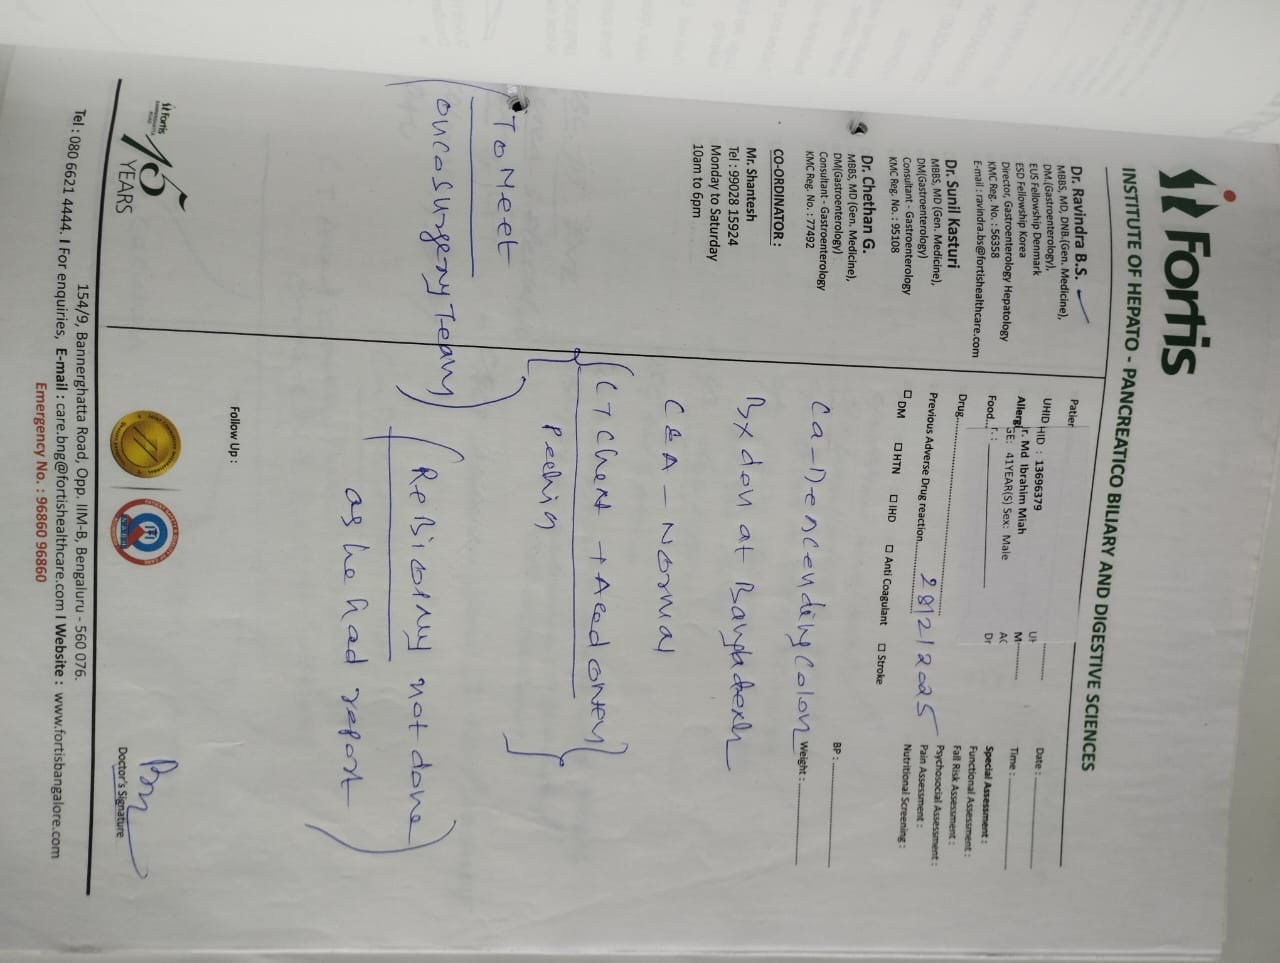 Fortis
INSTITUTE OF HEPATO - PANCREATICO BILIARY AND DIGESTIVE SCIENCES
Dr. Ravindra B.S.
MBBS, MD, DNB.(Gen. Medicine),
DM.(Gastroenterology),
EUS Fellowship Denmark
ESD Fellowship Korea
Director, Gastroenterology Hepatology
KMC Reg. No. : 56358
E-mail : ravindra.bs@fortishealthcare.com
Dr. Sunil Kasturi
MBBS, MD (Gen. Medicine),
DM(Gastroenterology)
Consultant - Gastroenterology
KMC Reg. No. : 95108
Dr. Chethan G.
MBBS, MD (Gen. Medicine),
DM(Gastroenterology)
Consultant - Gastroenterology
KMC Reg. No. : 77492
CO-ORDINATOR :
Mr. Shantesh
Tel : 99028 15924
Monday to Saturday
10am to 6pm
Patier
UHID HID : 13696379
Allergi r. Md Ibrahim Miah
GE: 41YEAR(S) Sex: Male
Food... r. :
Drug
Previous Adverse Drug reaction
DM HTN IHD Anti Coagulant Stroke
UH
M
AC
Dr
Date :
Time :
Special Assessment :
Functional Assessment :
Fall Risk Assessment :
Psychosocial Assessment :
Pain Assessment :
Nutritional Screening :
BP :
Weight :
28/2/2025
Ca-Dencending Colon
Bx don at Bangladesh
CEA - Normal
(CT Chest + Abdomen)
To Meet
oncosurgery Team)
(ReBiopsy not done
as he had report
Follow Up :
Fortis
15
YEARS
Doctor's Signature
154/9, Bannerghatta Road, Opp. IIM-B, Bengaluru - 560 076.
Tel : 080 6621 4444. I For enquiries, E-mail : care.bng@fortishealthcare.com I Website : www.fortisbangalore.com
Emergency No. : 96860 96860